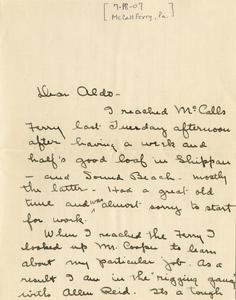 [ 7-18-07
McCall Ferry, Pa. ]
Dear Aldo-
I reached McCalls
Ferry last Tuesday afternoon
after having a week and
half's good loaf in Shippan
- and Sound Beach - mostly
the latter - Had a great old
time and was almost sorry to start
for work.
When I reached the Ferry I
looked up Mr. Cooper to learn
about my particular job. As a
result I am in the "rigging gang"
with Allen Reid. Its tough